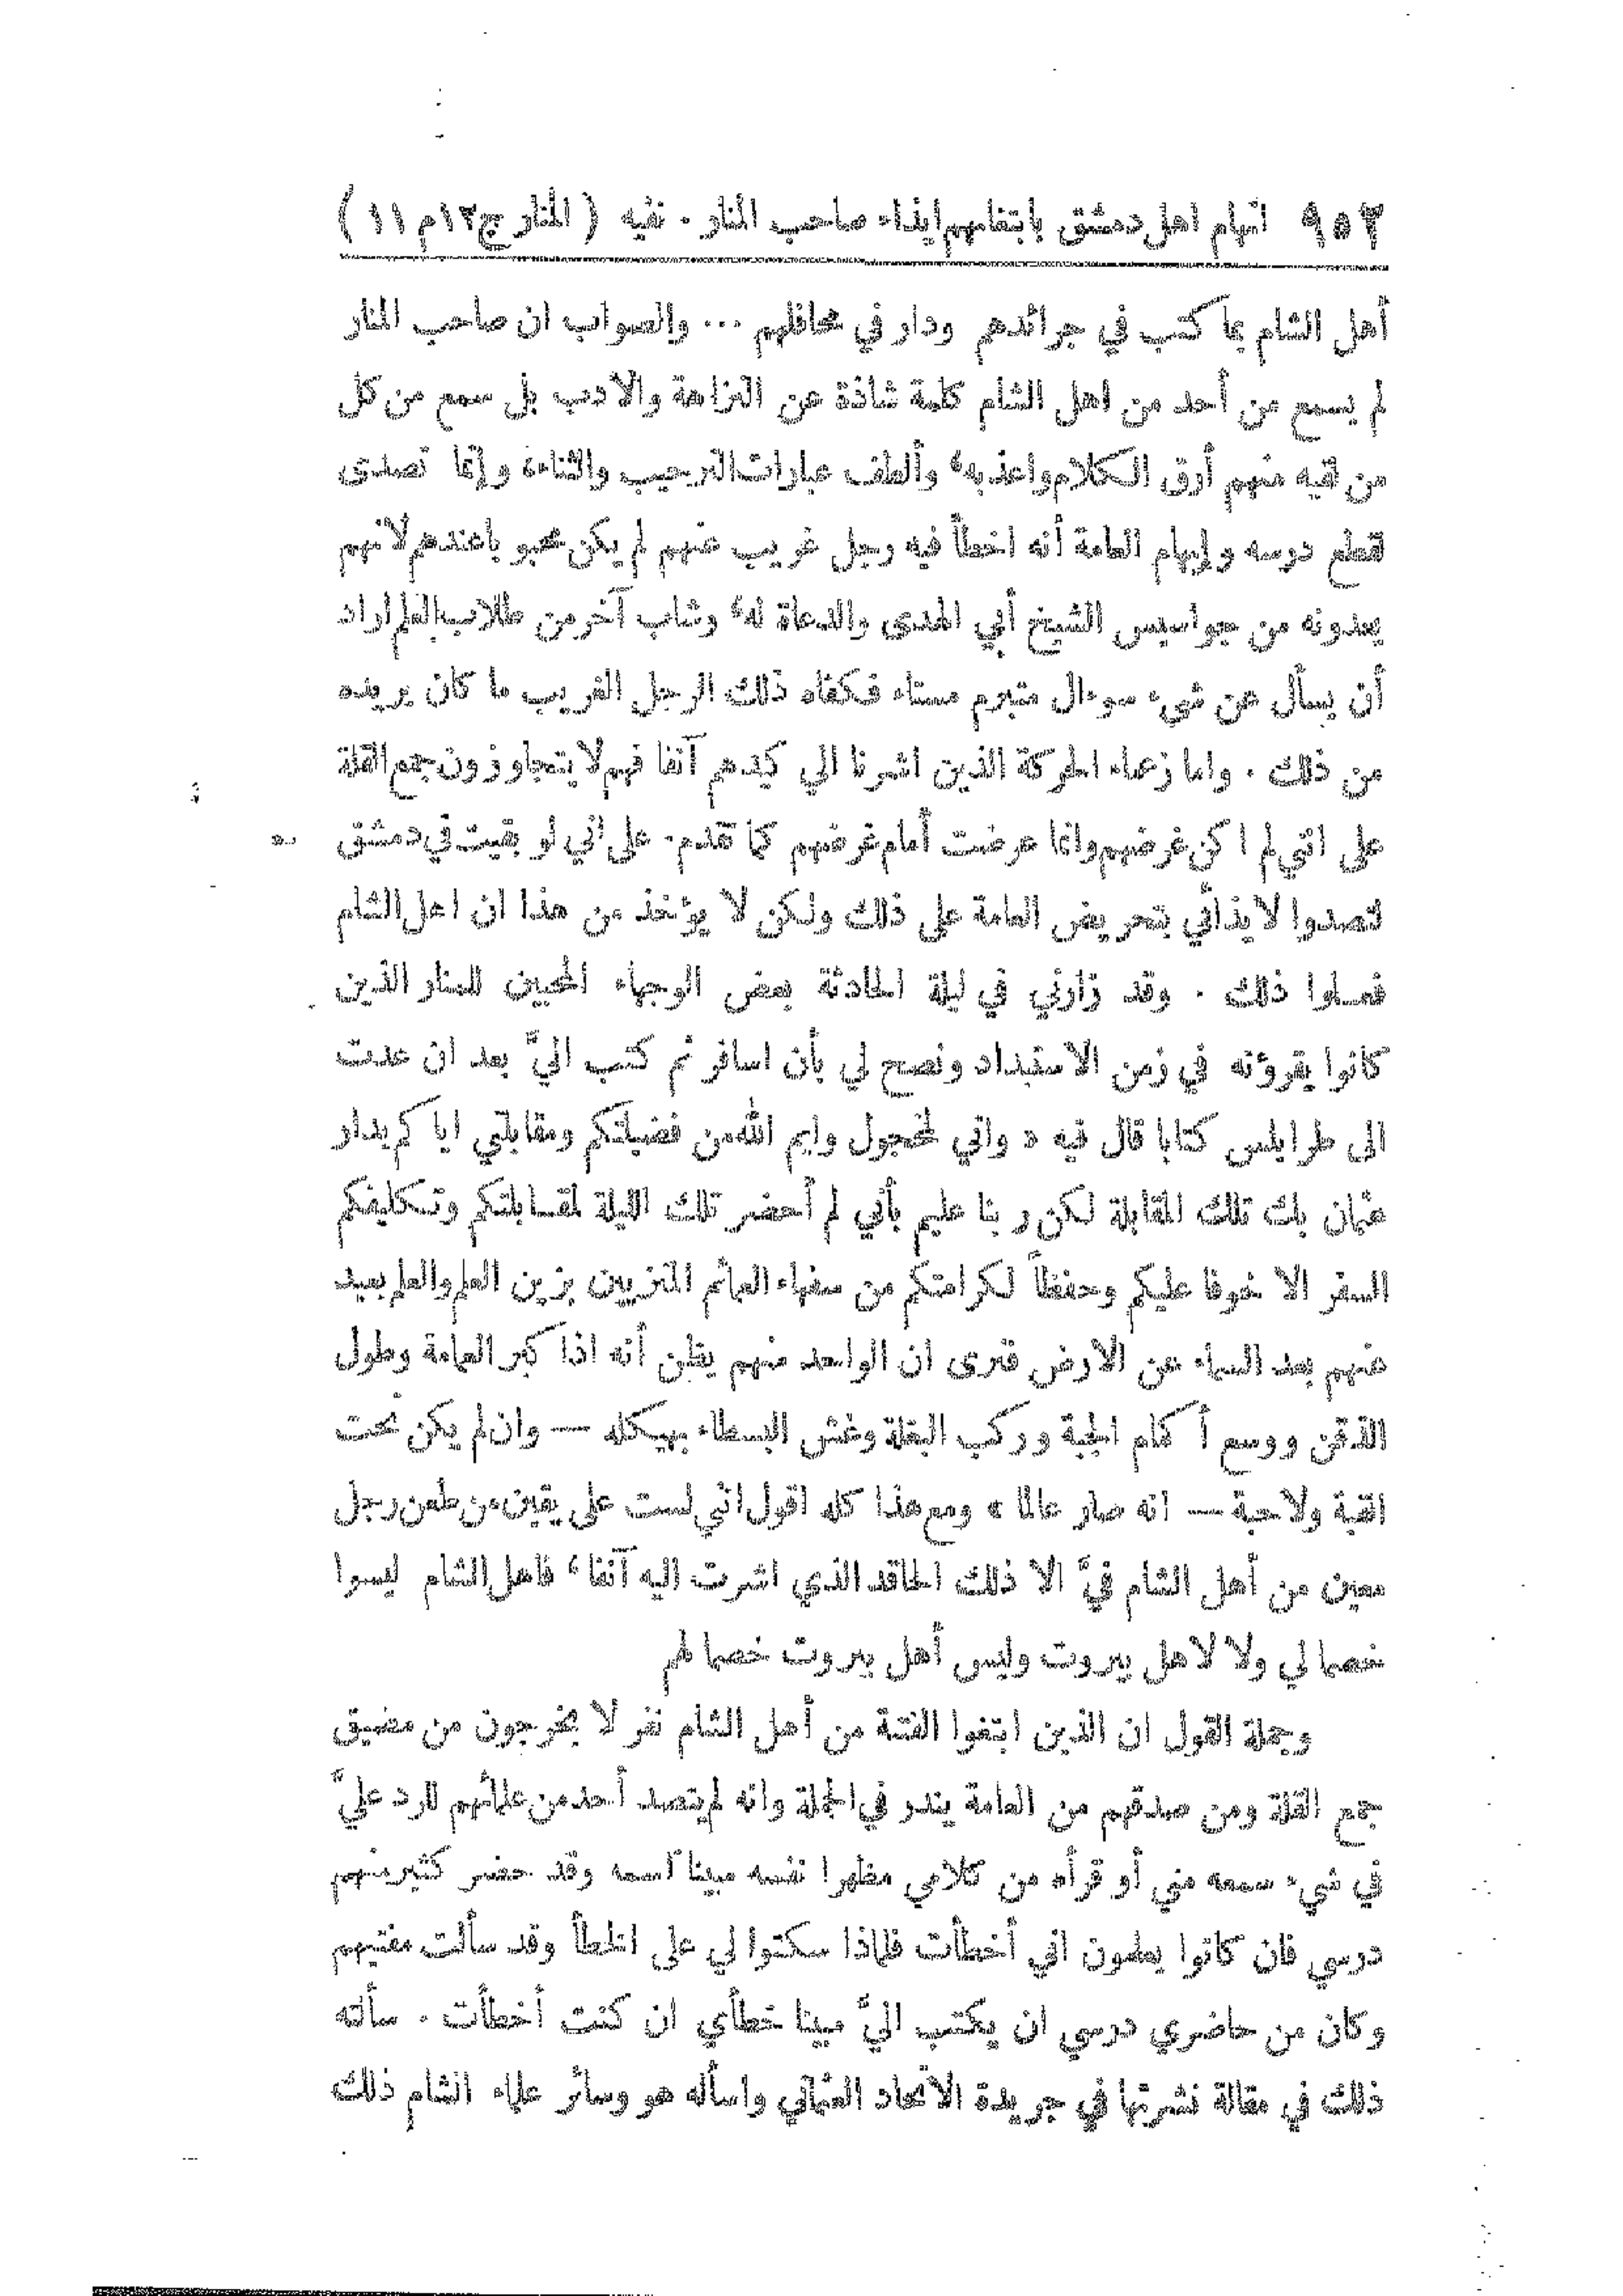 ٩٥٢ اتهام اهل دمشق بابتغائهم ايذاء صاحب المنار . نفيه ( المنار ج١٢م ١١ )
أهل الشام بما كتب في جرائدهم ودار في محافلهم ... والصواب ان صاحب المنار
لم يسمع من أحد من اهل الشام كلمة شاذة عن النزاهة والادب بل سمع من كل
من لقيه منهم أرق الكلام واعذبه، وألطف عبارات الترحيب والثناء، وإنما تصدى
لقطع درسه وإيهام العامة أنه اخطأ فيه رجل غريب عنهم لم يكن محبوبا عندهم لانهم
يعدونه من جواسيس الشيخ أبي الهدى والدعاة له، وشاب آخر من طلاب العلم اراد
أن يسأل عن شيء سوءال متبرم مستاء فكفاه ذلك الرجل الغريب ما كان يريده
من ذلك . واما زعماء الحركة الذين اشرنا الي كيدهم آنفا فهم لا يتجاوزون جمع القلة
على انني لم اكن غرضهم وانما عرضت أمام غرضهم كما تقدم . على اني لو بقيت في دمشق
لتصدوا لايذائي بتحريض العامة على ذلك ولكن لا يؤخذ من هذا ان اهل الشام
فعلوا ذلك . وقد زارني في ليلة الحادثة بعض الوجهاء المحبين للمنار الذين
كانوا يقرؤنه في زمن الاستبداد ونصح لي بأن اسافر ثم كتب اليَّ بعد ان عدت
الى طرابلس كتابا قال فيه « واني لخجول وايم الله من فضيلتكم ومقابلتي اياكم بدار
عثمان بك تلك المقابلة لكن ربنا عليم بأني لم أحضر تلك الليلة لمقابلتكم وتكليفكم
السفر الا خوفا عليكم وحفظاً لكرامتكم من سفهاء العمائم المتزيين بزين العلم والعلم بعيد
عنهم بعد السماء عن الارض فترى ان الواحد منهم يظن أنه اذا كبر العمامة وطول
الذقن ووسع أكمام الجبة وركب البغلة وغش البسطاء بهيكله — وان لم يكن تحت
القبة ولا حبة — انه صار عالما » ومع هذا كله اقول اني لست على يقين من طعن رجل
معين من أهل الشام فيَّ الا ذلك الحاقد الذي اشرت اليه آنفا، فاهل الشام ليسوا
خصما لي ولا لاهل بيروت وليس أهل بيروت خصما لهم
وجملة القول ان الذين ابتغوا الفتنة من أهل الشام نفر لا يخرجون من مضيق
جمع القلة ومن صدقهم من العامة يندر في الجملة وانه لم يتصد أحد من علمائهم للرد عليَّ
في شيء سمعه مني أو قرأه من كلامي مظهرا نفسه مبينا اسمه وقد حضر كثير منهم
درسي فان كانوا يعلمون اني أخطأت فلماذا سكتوا لي على الخطأ وقد سألت مفتيهم
وكان من حاضري درسي ان يكتب اليَّ مبينا خطأي ان كنت أخطأت . سألته
ذلك في مقالة نشرتها في جريدة الاتحاد العثماني واسأله هو وسائر علماء الشام ذلك